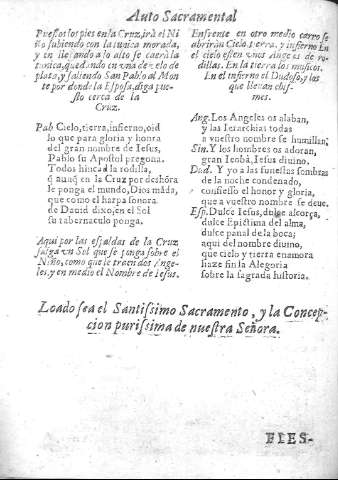 Auto Sacramental
Puestos los pies en la Cruz, irà el Ni
ño subiendo con la tunica morada,
y en llegando a lo alto se caerà la
tunica, quedando en vna de velo de
plata, y saliendo San Pablo al Mon
te por donde la Esposa, diga pue-
sto cerca de la
Cruz.
Pab Cielo, tierra, infierno, oid
lo que para gloria y honra
del gran nombre de Iesus,
Pablo su Apostol pregona.
Todos hincad la rodilla,
q̃ aunq̃ en la Cruz por deshõra
le ponga el mundo, Dios mãda,
que como el harpa sonora
de Dauid dixo, en el Sol
su tabernaculo ponga.
Aqui por las espaldas de la Cruz
salga vn Sol que se ponga sobre el
Niño, como que le traen dos Ange-
les, y en medio el Nombre de Iesus.
Enfrente en otro medio carro se
abriràn Cielo, tierra, y infierno En
el cielo estèn vnos Angeles de ro-
dillas. En la tierra los musicos.
En el infierno el Dudoso, y los
que lleuan chis-
mes.
Ang. Los Angeles os alaban,
y las Ierarchias todas
a vuestro nombre se humillan;
Sin. Y los hombres os adoran,
gran Ieobà, Iesus diuino.
Dud. Y yo a las funestas sombras
de la noche condenado,
confiesso el honor y gloria,
que a vuestro nombre se deue.
Esp. Dulce Iesus, dulce alcorça,
dulce Epictima del alma,
dulce panal de la boca;
aqui del nombre diuino,
que cielo y tierra enamora
haze fin la Alegoria
sobre la sagrada historia.
Loado sea el Santissimo Sacramento, y la Concep-
cion purissima de nuestra Señora.
FIES-